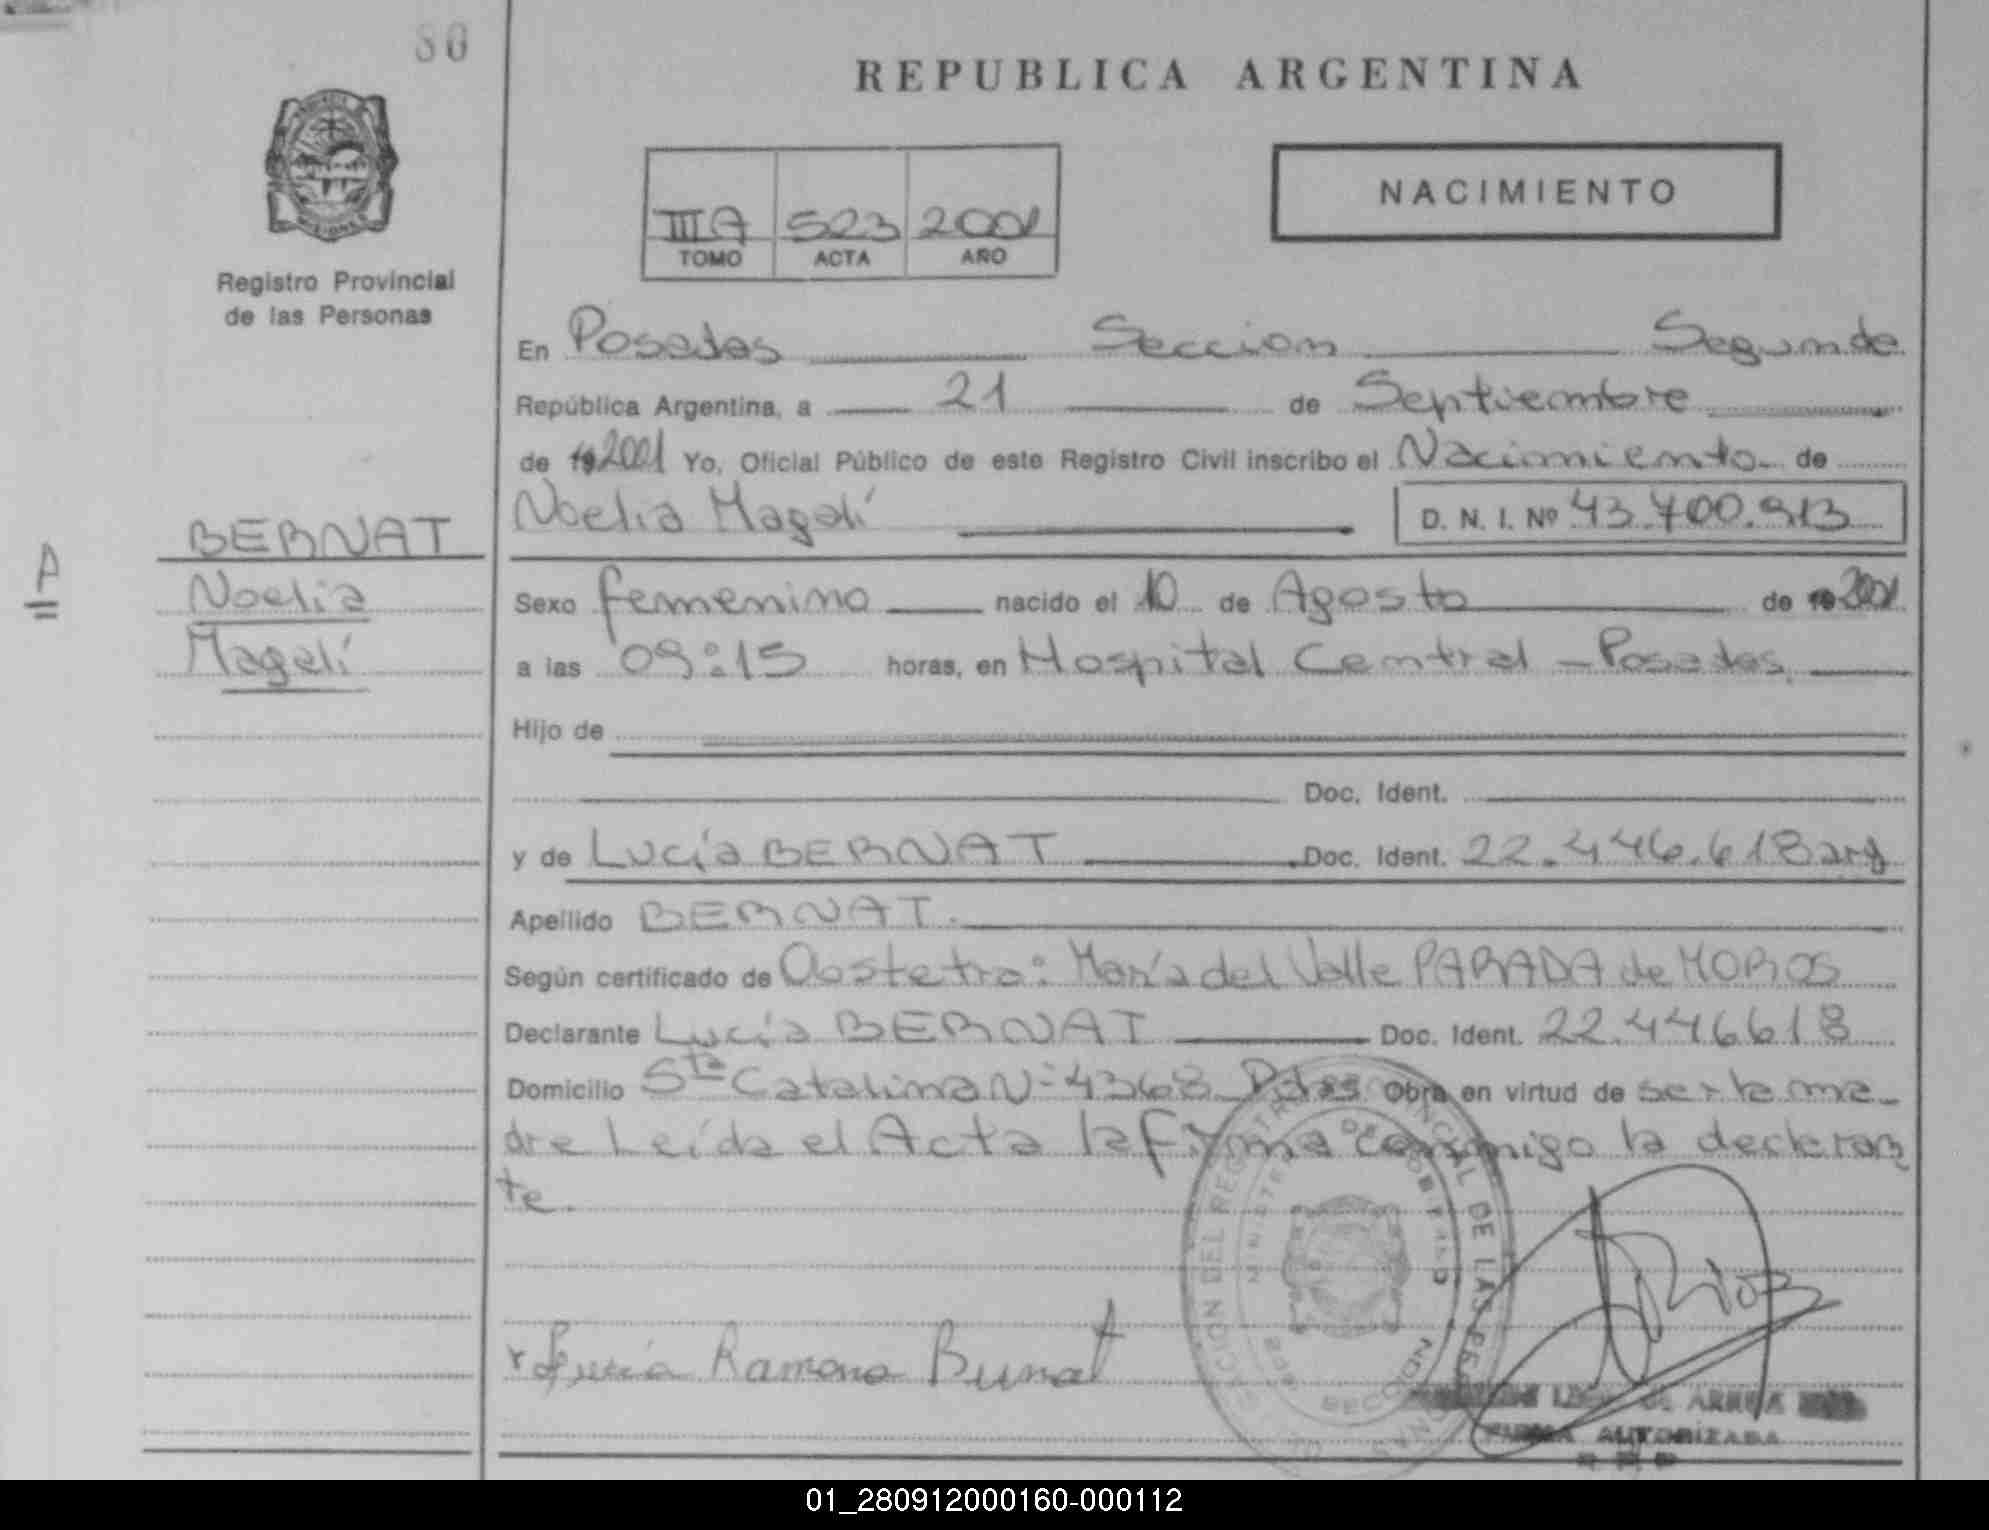 80
REPUBLICA ARGENTINA
NACIMIENTO
III A 523 2001
TOMO ACTA AÑO
Registro Provincial
de las Personas
En Posadas Seccion Segunda
República Argentina, a 21 de Septiembre
de 19 2001 Yo, Oficial Público de este Registro Civil inscribo el Nacimiento de
Noelia Magalí D. N. I. Nº 43.700.913
A
BERNAT
Noelia
Magalí
Sexo femenino nacido el 10 de Agosto de 19 2001
a las 09:15 horas, en Hospital Central - Posadas.
Hijo de
Doc. Ident.
y de Lucía BERNAT Doc. Ident. 22.446.618 arg
Apellido BERNAT.
Según certificado de Obstetra: María del Valle PARADA de MOROS
Declarante Lucía BERNAT Doc. Ident. 22.446618
Domicilio Sta Catalina Nº 4368 Pdas Obra en virtud de ser la ma-
dre Leída el Acta la firma conmigo la declaran
te.
Lucia Ramona Bernat
DE LAS
SECCION
FIRMA AUTORIZADA
01_280912000160-000112